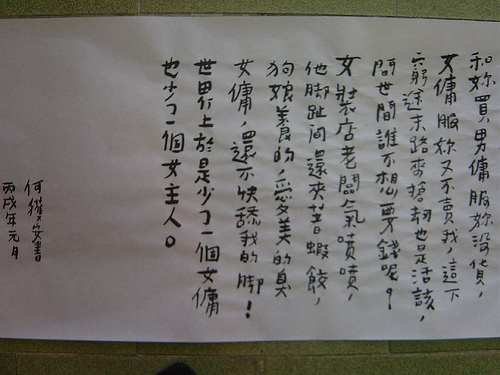 和妳買男傭服妳没貨，
女傭服妳又不賣我，這下
窮途末路來搶劫也是活該，
問世間誰不想要錢呢？
女裝店老闆氣噴噴，
他脚趾间還夾著蝦餃，
狗娘養的，愛美的臭
女傭，還不快舔我的脚！
世界上於是少了一個女傭
也少了一個女主人。
何書
丙戌年元月